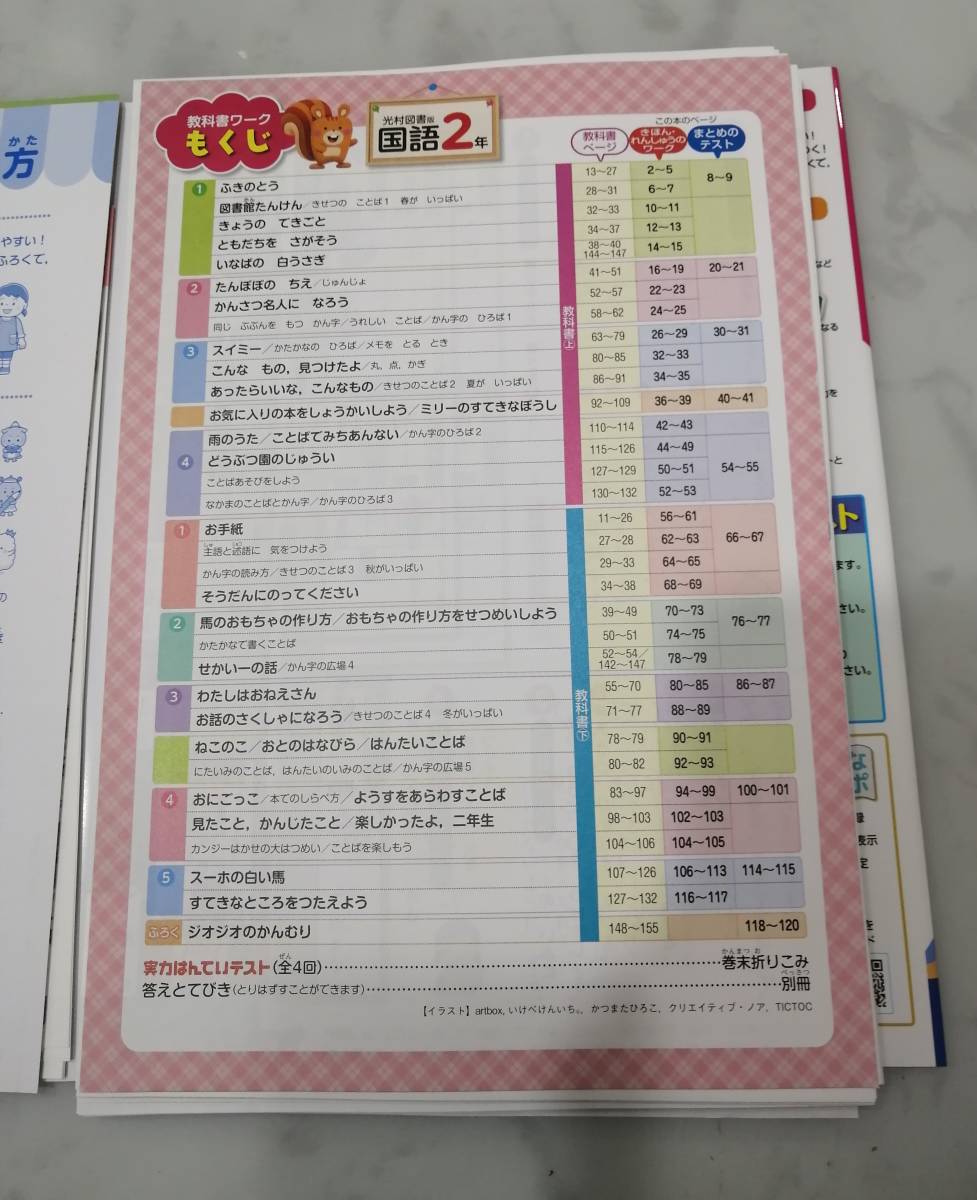 かた
方
やすい！
ふろくで，
教科書ワーク
もくじ
光村図書版
国語2年
この本のページ
教科書ページ
きほん・れんしゅうのワーク
まとめのテスト
1 ふきのとう 13〜27 2〜5 8〜9
図書館たんけん／きせつの ことば1 春が いっぱい 28〜31 6〜7
きょうの できごと 32〜33 10〜11
ともだちを さがそう 34〜37 12〜13
いなばの 白うさぎ 38〜40 144〜147 14〜15
2 たんぽぽの ちえ／じゅんじょ 41〜51 16〜19 20〜21
かんさつ名人に なろう 52〜57 22〜23
同じ ぶぶんを もつ かん字／うれしい ことば／かん字の ひろば1 58〜62 24〜25
教科書上
3 スイミー／かたかなの ひろば／メモを とる とき 63〜79 26〜29 30〜31
こんな もの，見つけたよ／丸，点，かぎ 80〜85 32〜33
あったらいいな，こんなもの／きせつのことば2 夏が いっぱい 86〜91 34〜35
お気に入りの本をしょうかいしよう／ミリーのすてきなぼうし 92〜109 36〜39 40〜41
4 雨のうた／ことばでみちあんない／かん字のひろば2 110〜114 42〜43 54〜55
どうぶつ園のじゅうい 115〜126 44〜49
ことばあそびをしよう 127〜129 50〜51
なかまのことばとかん字／かん字のひろば3 130〜132 52〜53
1 お手紙 11〜26 56〜61 66〜67
主語と述語に 気をつけよう 27〜28 62〜63
かん字の読み方／きせつのことば3 秋がいっぱい 29〜33 64〜65
そうだんにのってください 34〜38 68〜69
2 馬のおもちゃの作り方／おもちゃの作り方をせつめいしよう 39〜49 70〜73 76〜77
かたかなで書くことば 50〜51 74〜75
せかい一の話／かん字の広場4 52〜54／142〜147 78〜79
教科書下
3 わたしはおねえさん 55〜70 80〜85 86〜87
お話のさくしゃになろう／きせつのことば4 冬がいっぱい 71〜77 88〜89
ねこのこ／おとのはなびら／はんたいことば 78〜79 90〜91
にたいみのことば，はんたいのいみのことば／かん字の広場5 80〜82 92〜93
4 おにごっこ／本でのしらべ方／ようすをあらわすことば 83〜97 94〜99 100〜101
見たこと，かんじたこと／楽しかったよ，二年生 98〜103 102〜103
カンジーはかせの大はつめい／ことばを楽しもう 104〜106 104〜105
5 スーホの白い馬 107〜126 106〜113 114〜115
すてきなところをつたえよう 127〜132 116〜117
ふろく ジオジオのかんむり 148〜155 118〜120
実力はんていテスト(全4回) 巻末折りこみ
答えとてびき(とりはずすことができます) 別冊
【イラスト】artbox, いけべけんいち。, かつまたひろこ, クリエイティブ・ノア, TICTOC